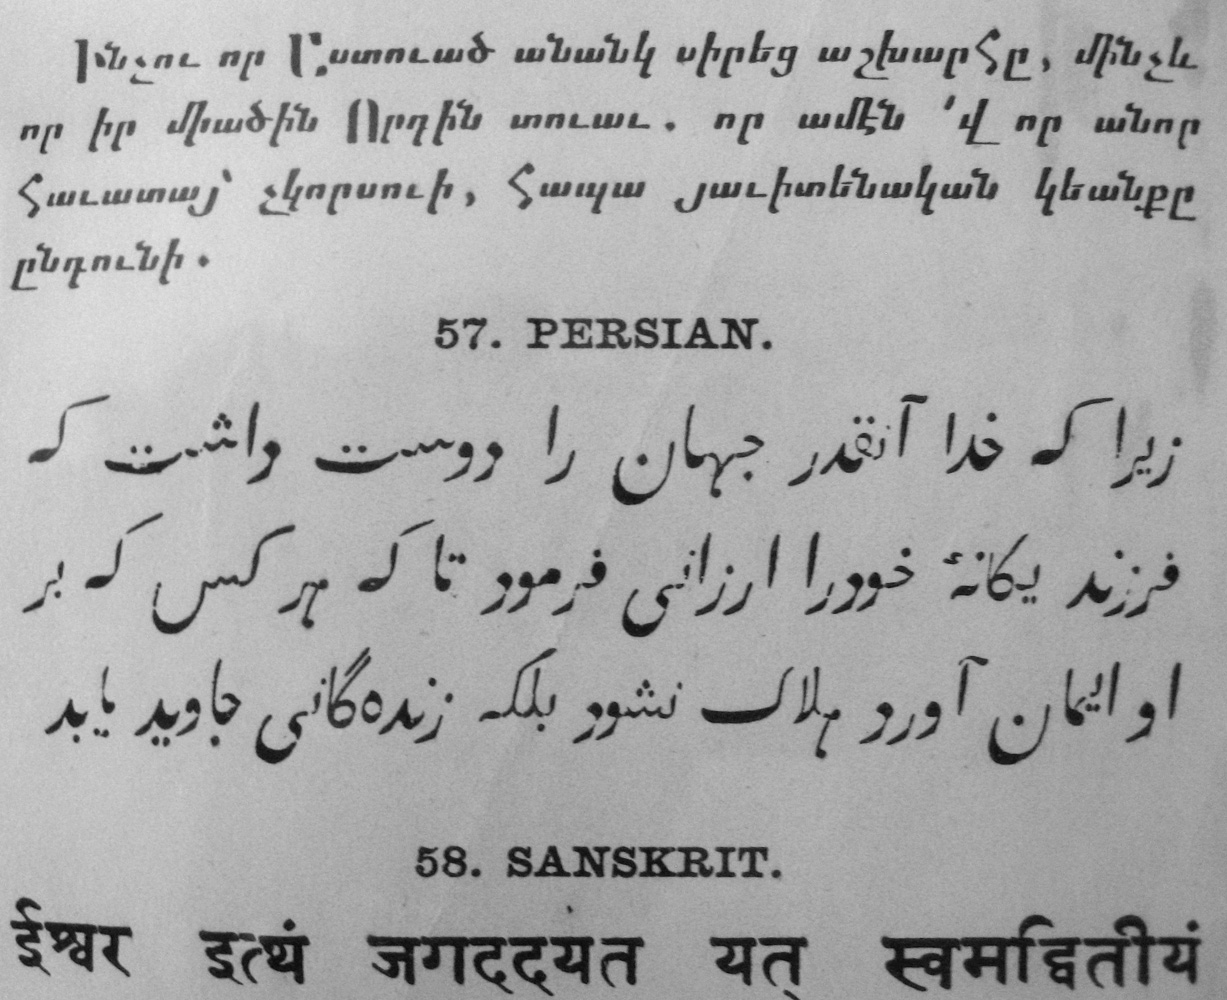 Ինչու որ Աստուած անանկ սիրեց աշխարհը, մինչև
որ իր միածին Որդին տուաւ. որ ամէն ՚վ որ անոր
հաւատայ՝ չկորսուի, հապա յաւիտենական կեանքը
ընդունի.
57. PERSIAN.
زیرا که خدا آنقدر جهان را دوست داشت که
فرزند یکانهٔ خودرا ارزانی فرمود تا که هر کس که بر
او ایمان آورد هلاک نشود بلکه زنده‌گانی جاوید یابد
58. SANSKRIT.
ईश्वर इत्थं जगददयत यत् स्वमद्वितीयं